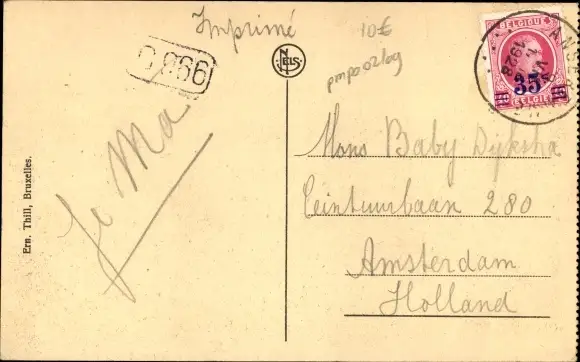 Imprimé
10€
C 966
NELS
BELGIQUE
35
BELGIË
1928
Je Ma
Mons Baby Dijkstra
Ceintuurbaan 280
Amsterdam
Holland
Ern. Thill, Bruxelles.